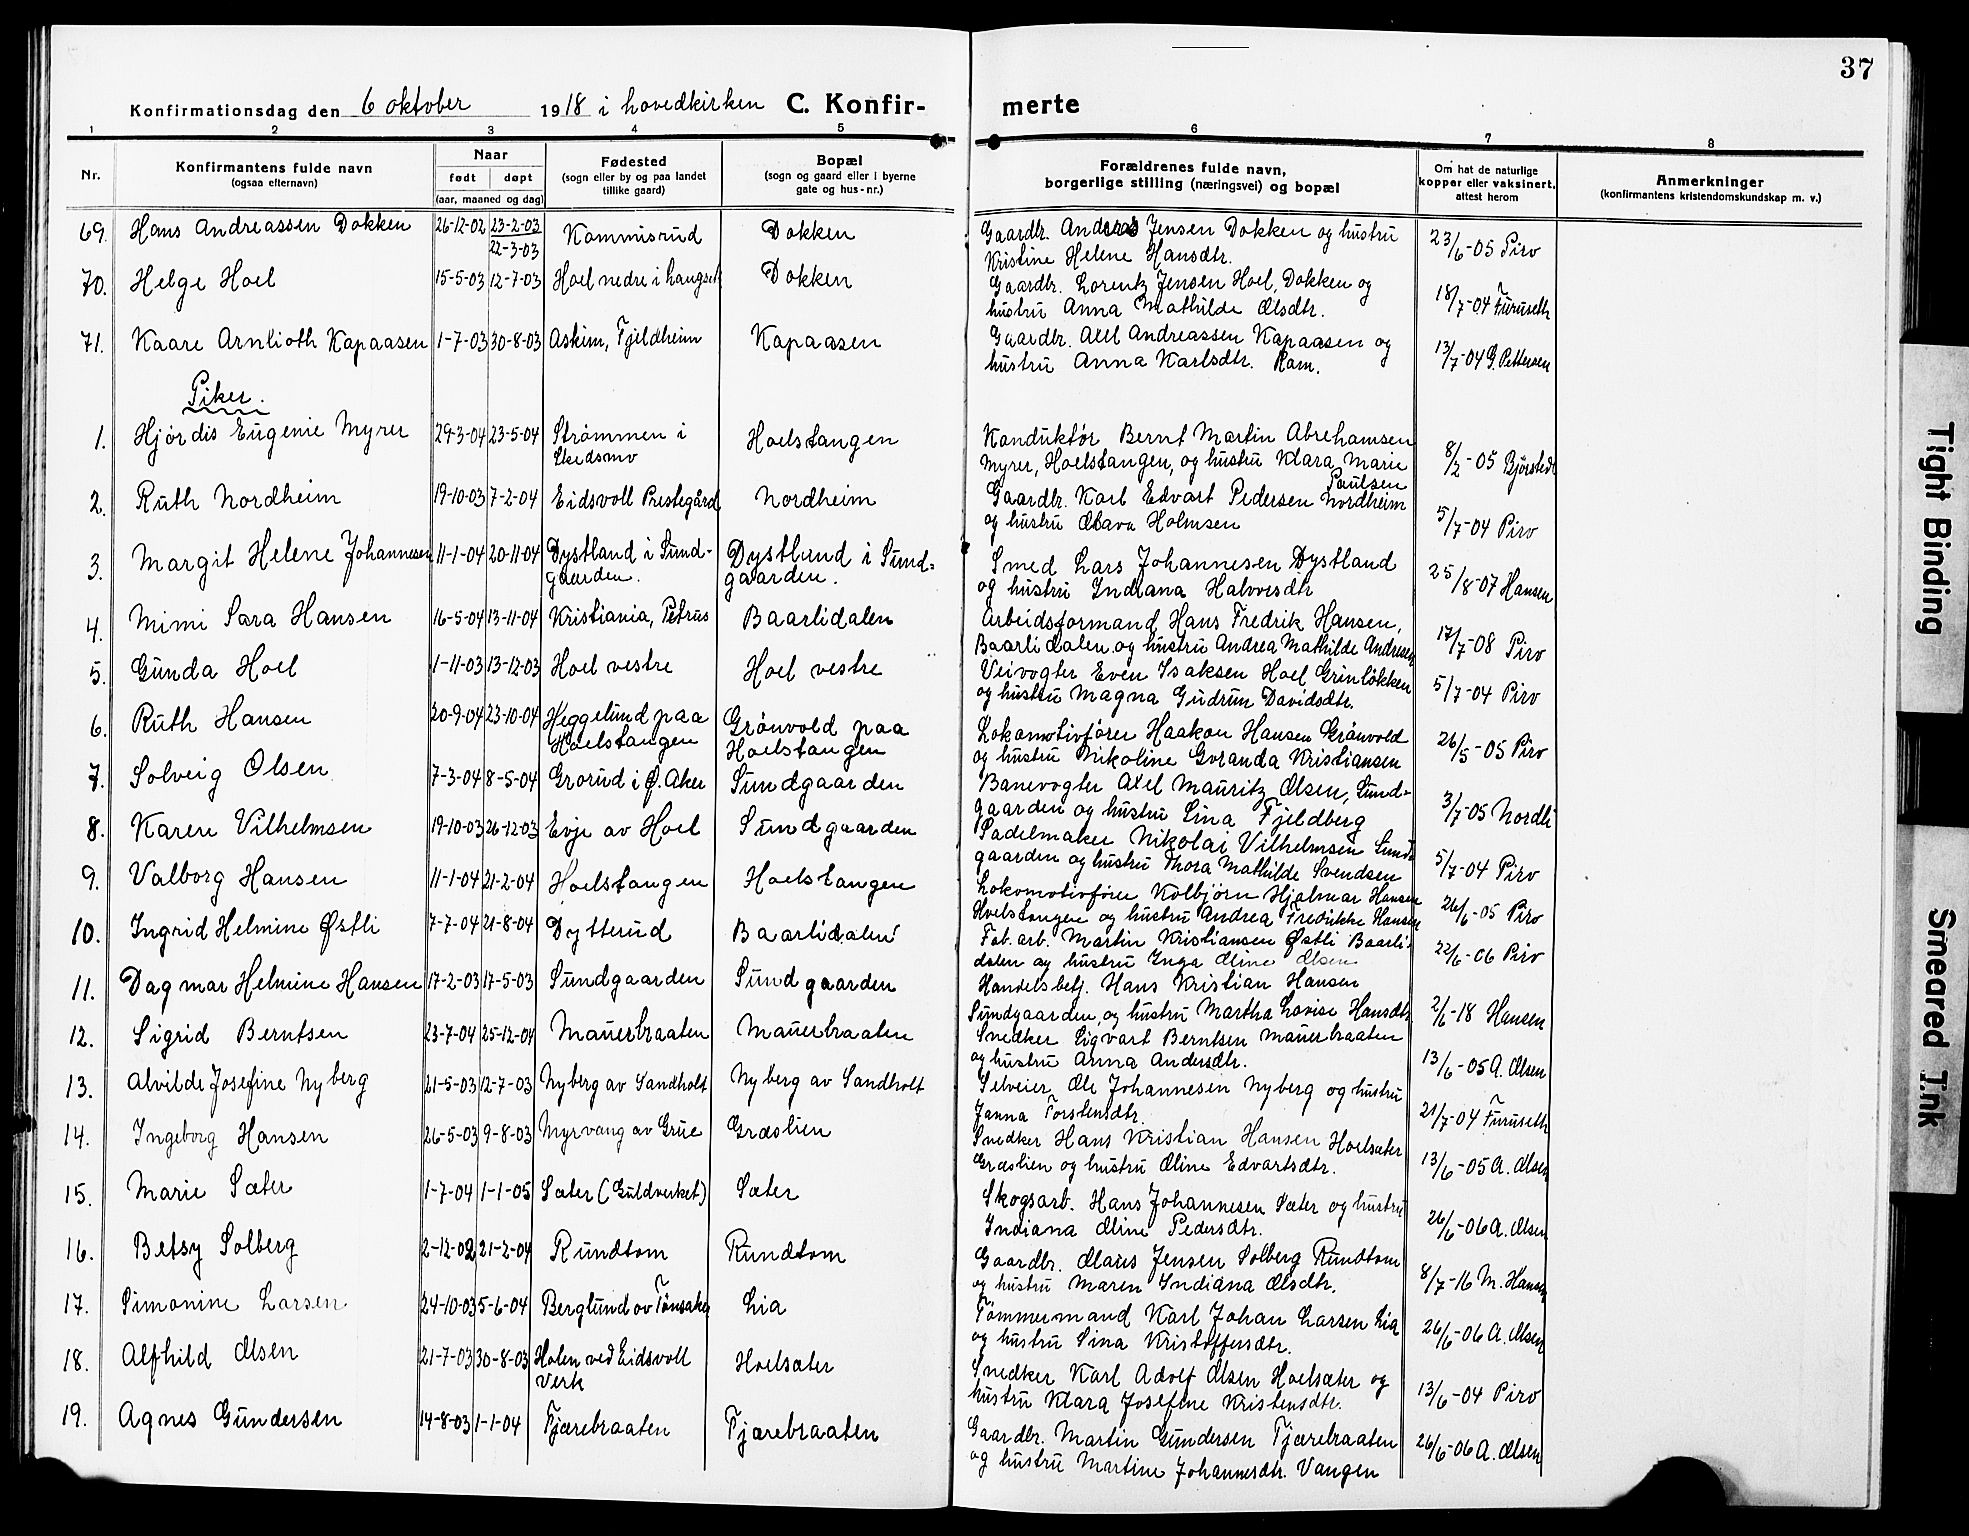 37
Konfirmationsdag den 6 oktober 1918 i hovedkirken C. Konfir- merte
1 2 3 4 5 6 7 8
Nr.
Konfirmantens fulde navn
(ogsaa efternavn)
Naar
født døpt
(aar, maaned og dag)
Fødested
(sogn eller by og paa landet
tillike gaard)
Bopæl
(sogn og gaard eller i byerne
gate og hus-nr.)
Forældrenes fulde navn,
borgerlige stilling (næringsvei) og bopæl
Om hat de naturlige
kopper eller vaksinert,
attest herom
Anmerkninger
(konfirmantens kristendomskundskap m. v.)
69. Hans Andreassen Dokken 26-12-02 23-2-03 Kommisrud Dokken Gaardbr. Andreas Jensen Dokken og hustru 23/6-05 Piro
22-3-03 Kristine Helene Hansdtr.
70. Helge Hoel 15-5-03 12-7-03 Hoel nedre i Langset Dokken Gaardbr. Lorentz Jensen Hoel, Dokken og 18/7-04 Furuseth
hustru Anna Mathilde Olsdtr.
71. Kaare Arnlioth Kapaasen 1-7-03 30-8-03 Askim, Fjeldheim Kapaasen Gaardbr. Axel Andreassen Kapaasen og 13/7-04 G. Pettersen
hustru Anna Karlsdtr. Ram.
Piker.
1. Hjørdis Eugenie Myrer 29-3-04 23-5-04 Strømmen i Hoelstangen Konduktør Bernt Martin Abrehamsen 8/2-05 Bjørstedt
Skedsmo Myrer, Hoelstangen, og hustru Klara Marie
Paulsen
2. Ruth Nordheim 19-10-03 7-2-04 Eidsvoll Prestegård Nordheim Gaardbr. Karl Edvart Pedersen Nordheim 5/7-04 Piro
og hustru Olava Holmsen
3. Margit Helene Johannesen 11-1-04 20-11-04 Dystland i Sund- Dystlund i Sund- Smed Lars Johannesen Dystland 25/8-07 Hansen
gaarden. gaarden. og hustru Indiana Halvorsdtr
4. Mimi Sara Hansen 16-5-04 13-11-04 Kristiania, Petrus Baarlidalen Arbeidsformand Hans Fredrik Hansen, 17/7-08 Piro
Baarlidalen og hustru Andrea Mathilde Andresen
5. Gunda Hoel 1-11-03 13-12-03 Hoel vestre Hoel vestre Veivogter Even Isaksen Hoel Grinløkken 5/7-04 Piro
og hustru Magna Gudrun Davidsdtr.
6. Ruth Hansen 20-9-04 23-10-04 Heggelund paa Grønvold paa Lokomotivfører Haakon Hansen Grønvold 26/5-05 Piro
Hoelstangen Hoelstangen og hustru Nikoline Goranda Kristiansen
7. Solveig Olsen 7-3-04 8-5-04 Grorud i Ø. Aker Sundgaarden Banevogter Axel Mauritz Olsen, Sund- 3/7-05 Nordli
gaarden og hustru Lina Fjeldberg
8. Karen Vilhelmsen 19-10-03 26-12-03 Evje av Hoel Sundgaarden Sadelmaker Nikolai Vilhelmsen Sund- 5/7-04 Piro
gaarden og hustru Thora Mathilde Svendsen
9. Valborg Hansen 11-1-04 21-2-04 Hoelstangen Hoelstangen Lokomotivfører Kolbjørn Hjalmar Hansen 26/6-05 Piro
Hoelstangen og hustru Andrea Fredrikke Hansen
10. Ingrid Helmine Østli 7-7-04 21-8-04 Dytterud Baarlidalen Fab. arb. Martin Kristiansen Østli Baarli- 22/6-06 Piro
dalen og hustru Inga Oline Olsen
11. Dagmar Helmine Hansen 17-2-03 17-5-03 Sundgaarden Sundgaarden Handelsbetj. Hans Kristian Hansen 2/6-18 Hansen
Sundgaarden, og hustru Martha Lovise Hansdtr
12. Sigrid Berntsen 23-7-04 25-12-04 Mauerbraaten Mauerbraaten Snedker Sigvart Berntsen Mauerbraaten 13/6-05 A. Olsen
og hustru Anna Andersdtr.
13. Alvilde Josefine Nyberg 21-5-03 12-7-03 Nyberg av Sandholt Nyberg av Sandholt Selveier Ole Johannesen Nyberg og hustru 21/7-04 Furuseth
Janna Torstensdtr.
14. Ingeborg Hansen 26-5-03 9-8-03 Myrvang av Grue Græslien Snedker Hans Kristian Hansen Hoelsæter 13/6-05 A. Olsen
Græslien og hustru Oline Edvartsdtr.
15. Marie Sæter 1-7-04 1-1-05 Sæter (Guldverket) Sæter Skogsarb. Hans Johannesen Sæter og hustru 26/6-06 A. Olsen
Indiana Oline Pedersdtr.
16. Betsy Solberg 2-12-02 21-2-04 Rundtom Rundtom Gaardbr. Olaus Jensen Solberg Rundtom 8/7-16 M. Hansen
og hustru Maren Indiana Olsdtr.
17. Simonine Larsen 24-10-03 5-6-04 Berglund av Tønsaker Lia Tømmermand Karl Johan Larsen Lia 26/6-06 A. Olsen
og hustru Sina Kristoffersdtr.
18. Alfhild Olsen 21-7-03 30-8-03 Holen ved Eidsvoll Hoelsæter Snedker Karl Adolf Olsen Hoelsæter og 13/6-04 Piro
Verk hustru Klara Josefine Kristensdtr.
19. Agnes Gundersen 14-8-03 1-1-04 Fjærebraaten Fjærebraaten Gaardbr. Martin Gundersen Fjærebraaten 26/6-06 A. Olsen
og hustru Martine Johannesdtr. Vangen
Tight Binding
Smeared Ink